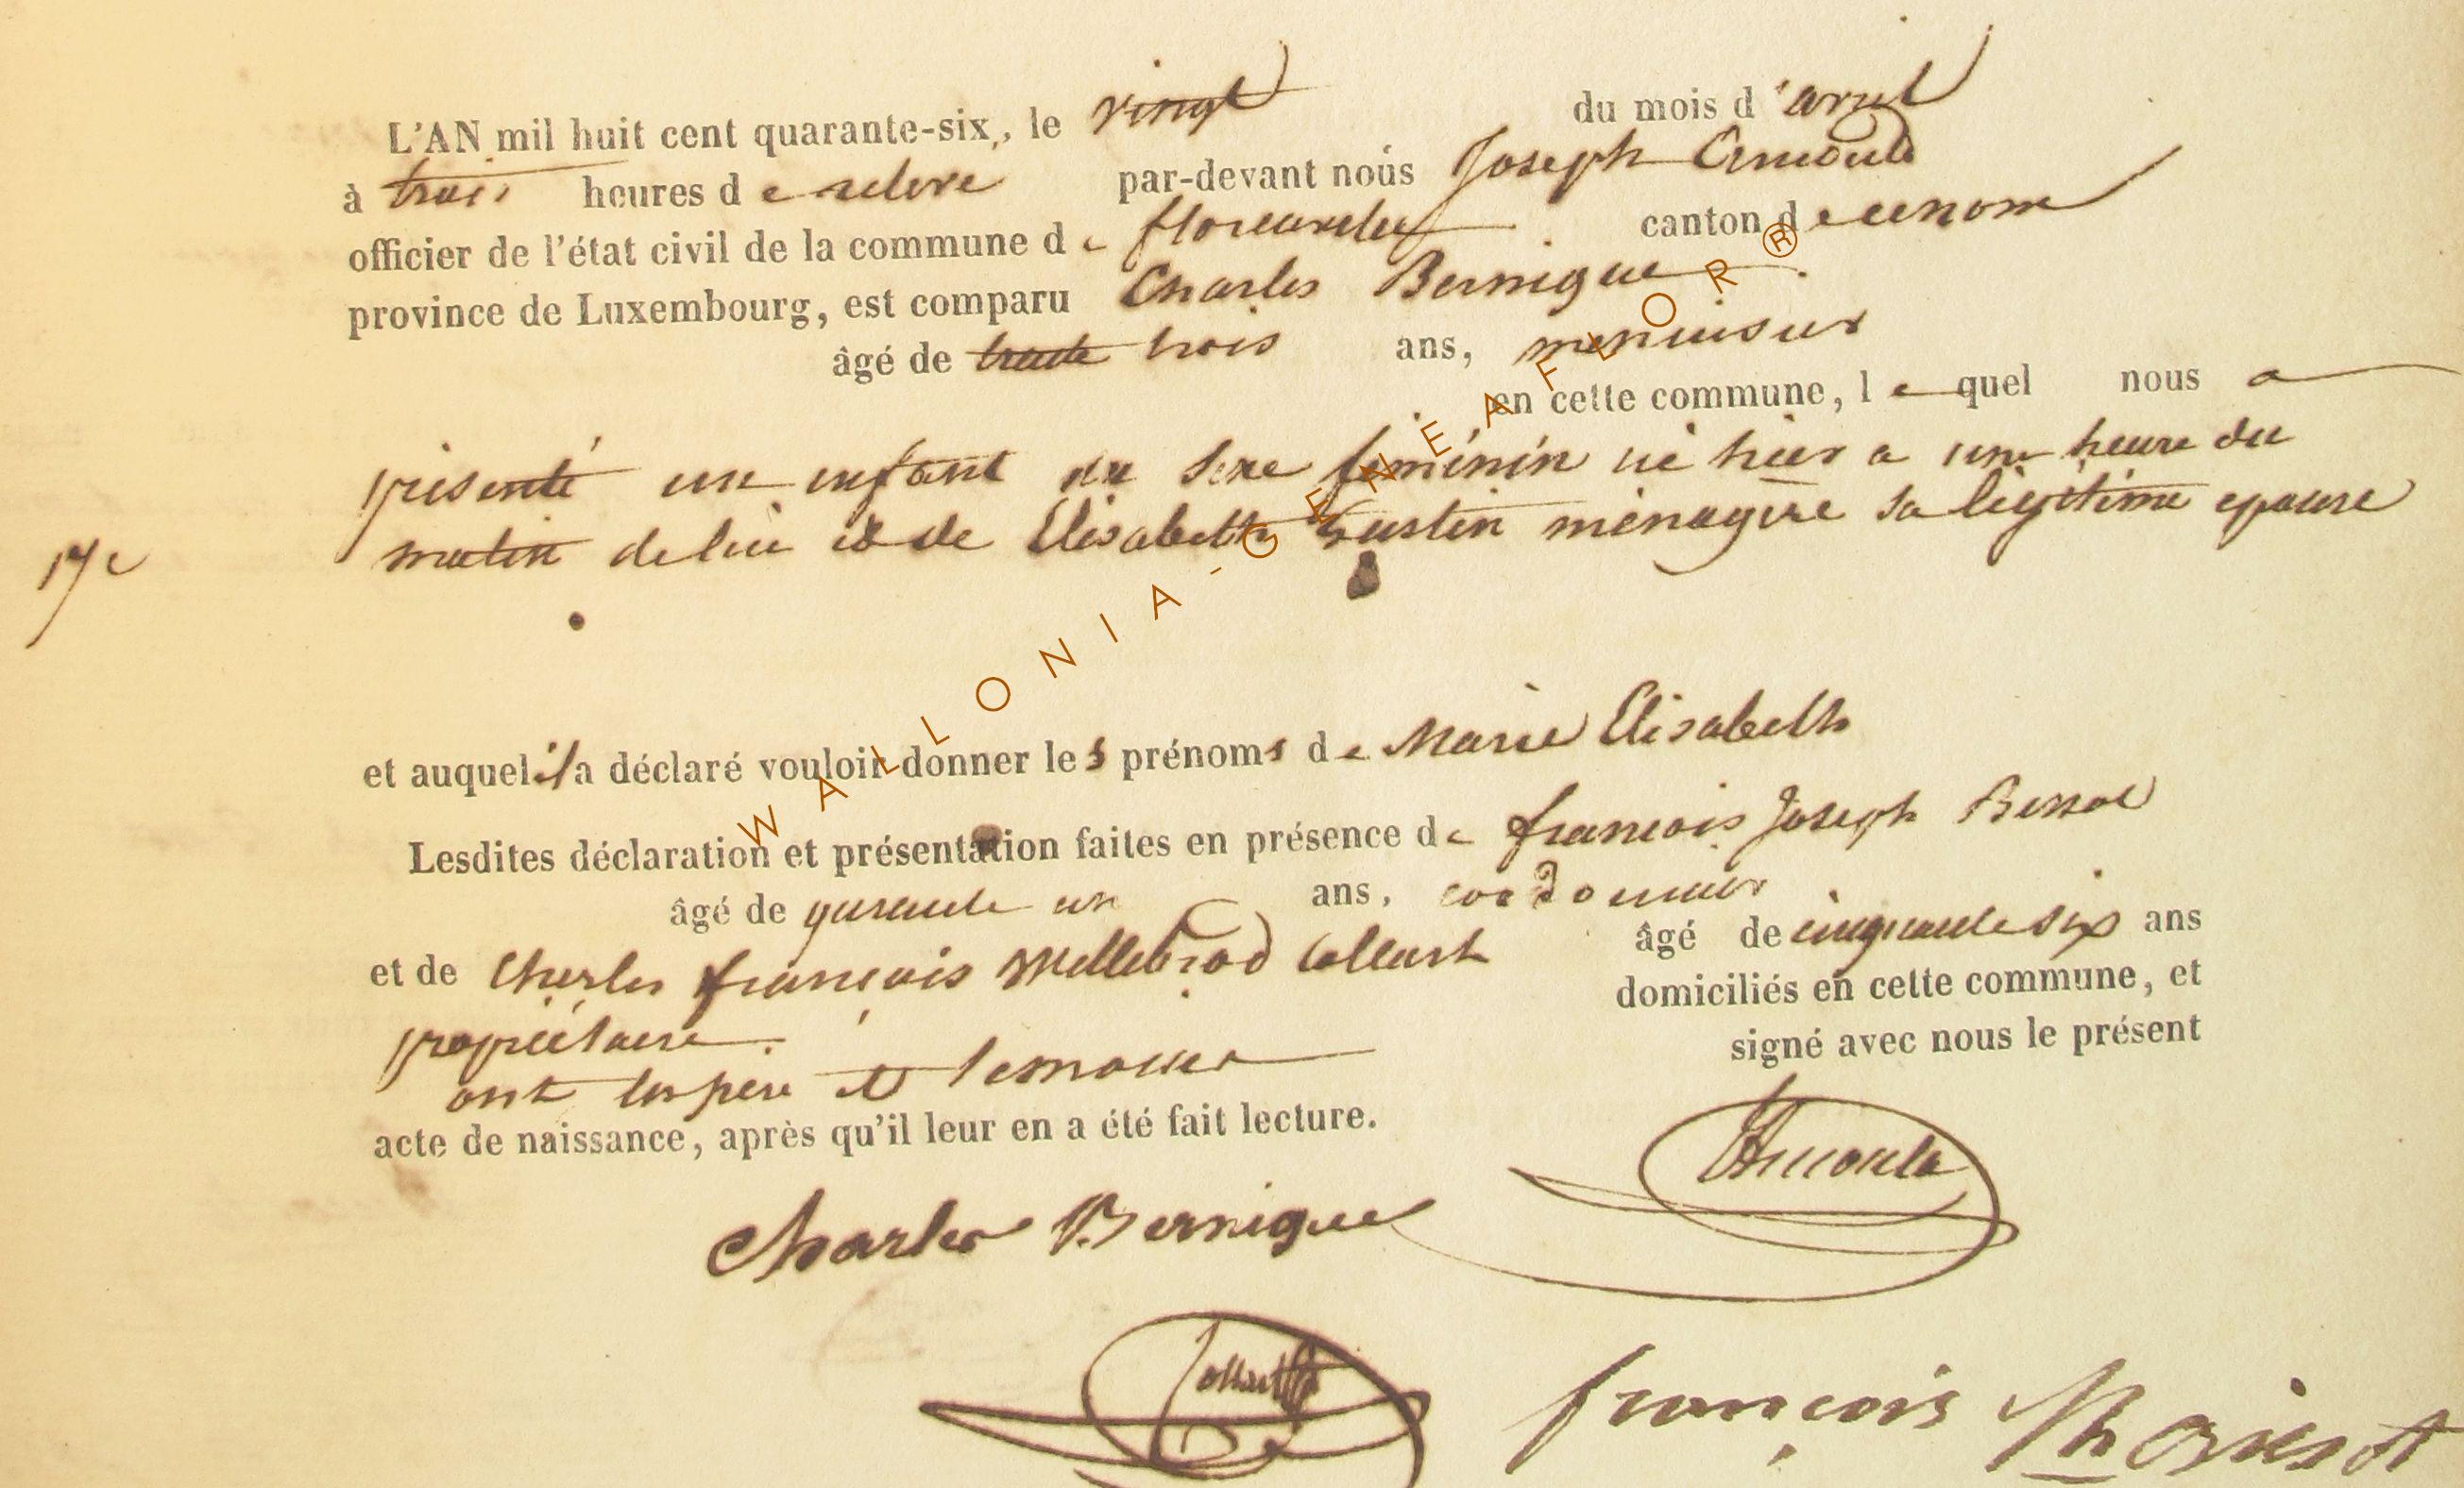 L'AN mil huit cent quarante-six, le vingt du mois d'avril
à trois heures de relevé par-devant nous Joseph Arnould
officier de l'état civil de la commune de florenville canton de
province de Luxembourg, est comparu Charles Bernique
âgé de trente trois ans, menuisier
en cette commune, lequel nous a
présenté un enfant du sexe féminin né hier a une heure du
17e
matin de lui et de Elisabeth Gustin ménagère sa légitime epouse
et auquel il a déclaré vouloir donner les prénoms de Marie Elisabeth
Lesdites déclaration et présentation faites en présence de françois Joseph
âgé de quarante un ans, cordonnier
et de Charles françois Willebrod Collart âgé de cinquante six ans
propriétaire. domiciliés en cette commune, et
ont les père et temoins signé avec nous le présent
acte de naissance, après qu'il leur en a été fait lecture.
Arnould
Charles Bernique
Collart
françois
WALLONIA-GENEAFLOR®